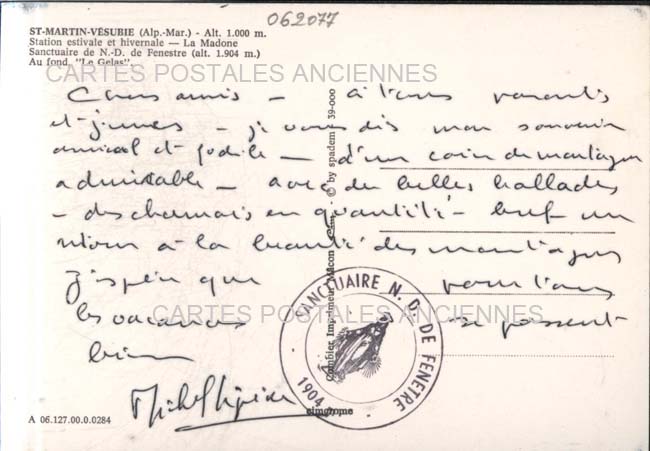 062077
ST-MARTIN-VÉSUBIE (Alp.-Mar.) - Alt. 1.000 m.
Station estivale et hivernale — La Madone
Sanctuaire de N.-D. de Fenestre (alt. 1.904 m.)
Au fond, "Le Gelas".
CARTES POSTALES ANCIENNES
Chers amis — à tous parents
et jeunes — je vous dis mon souvenir
amical et — d'un coin de montagne
admirable — avec de belles ballades
— des chamois en quantité — bref un
retour à la beauté des montagnes
J'espère que pour tous
les vacances se passent
bien
Michel
Combier Imprimeur Mâcon - © by spadem - 39-000
SANCTUAIRE N. D. DE FENETRE
1904
CARTES POSTALES ANCIENNES
cimcrome
A 06.127.00.0.0284